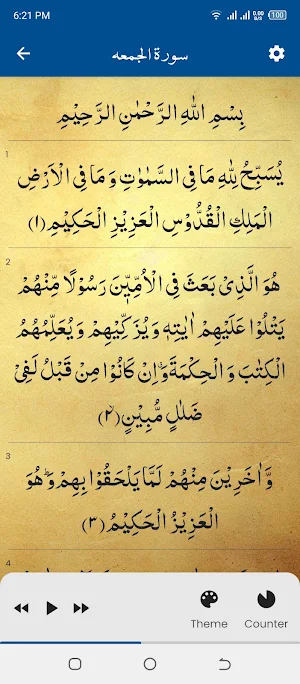 6:21 PM
0.00 B/S 100
سورة الجمعه
بِسْمِ اللهِ الرَّحْمٰنِ الرَّحِيْمِ
1
يُسَبِّحُ لِلّٰهِ مَا فِى السَّمٰوٰتِ وَمَا فِى الْاَرْضِ
الْمَلِكِ الْقُدُّوْسِ الْعَزِيْزِ الْحَكِيْمِ(۱)
2
هُوَ الَّذِىْ بَعَثَ فِى الْاُمِّيّٖنَ رَسُوْلًا مِّنْهُمْ
يَتْلُوْا عَلَيْهِمْ اٰيٰتِهٖ وَيُزَكِّيْهِمْ وَيُعَلِّمُهُمُ
الْكِتٰبَ وَالْحِكْمَةَۗ وَاِنْ كَانُوْا مِنْ قَبْلُ لَفِىْ
ضَلٰلٍ مُّبِيْنٍ(۲)
3
وَّاٰخَرِيْنَ مِنْهُمْ لَمَّا يَلْحَقُوْا بِهِمْۗ وَهُوَ
الْعَزِيْزُ الْحَكِيْمُ(۳)
4
Theme Counter